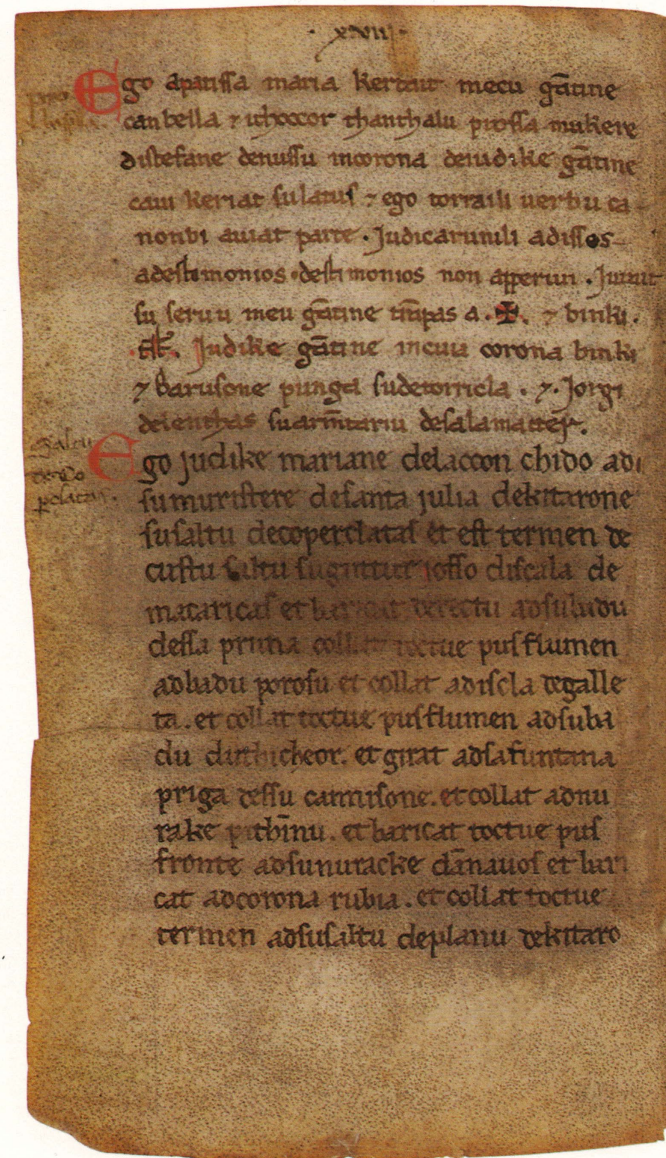 · xxviij ·
Ego apatissa maria kertait mecu gãtine
canbella ⁊ ithoccor thanthalu prossa mukere
distefane denussu incorona deiudike gãtine
caui keriat sulatus ⁊ ego torraili uerbu ca
nonbi auiat parte · Judicarunili adissos
adestimonios · destimonios non apperiui · Juruit
su seruu meu gãtine
a · ✠ · ⁊ binki ·
Judike gãtine incuia corona binki
⁊ Barusone punga sudetorricla · ⁊ · Jorgi
deienthas suarmtariu desalamatter ·
Ego judike mariane delaccon chido adi
sumuristere desanta julia dekitarone
susaltu decoperclatas et est termen de
custu saltu suguttur josso discala de
mataricas et baricat derectu adsuludu
dessa pruna collat toctue pusflumen
adbadu porosu et collat adiscla degalle
ta · et collat toctue pusflumen adsuba
du · et girat adsafuntana
priga dessu carrusone · et collat adnu
rake pithinu · et baricat toctue pus
fronte adsunuracke dãnauos et bari
cat adcorona rubia · et collat toctue
termen adsusaltu deplanu dekitaro